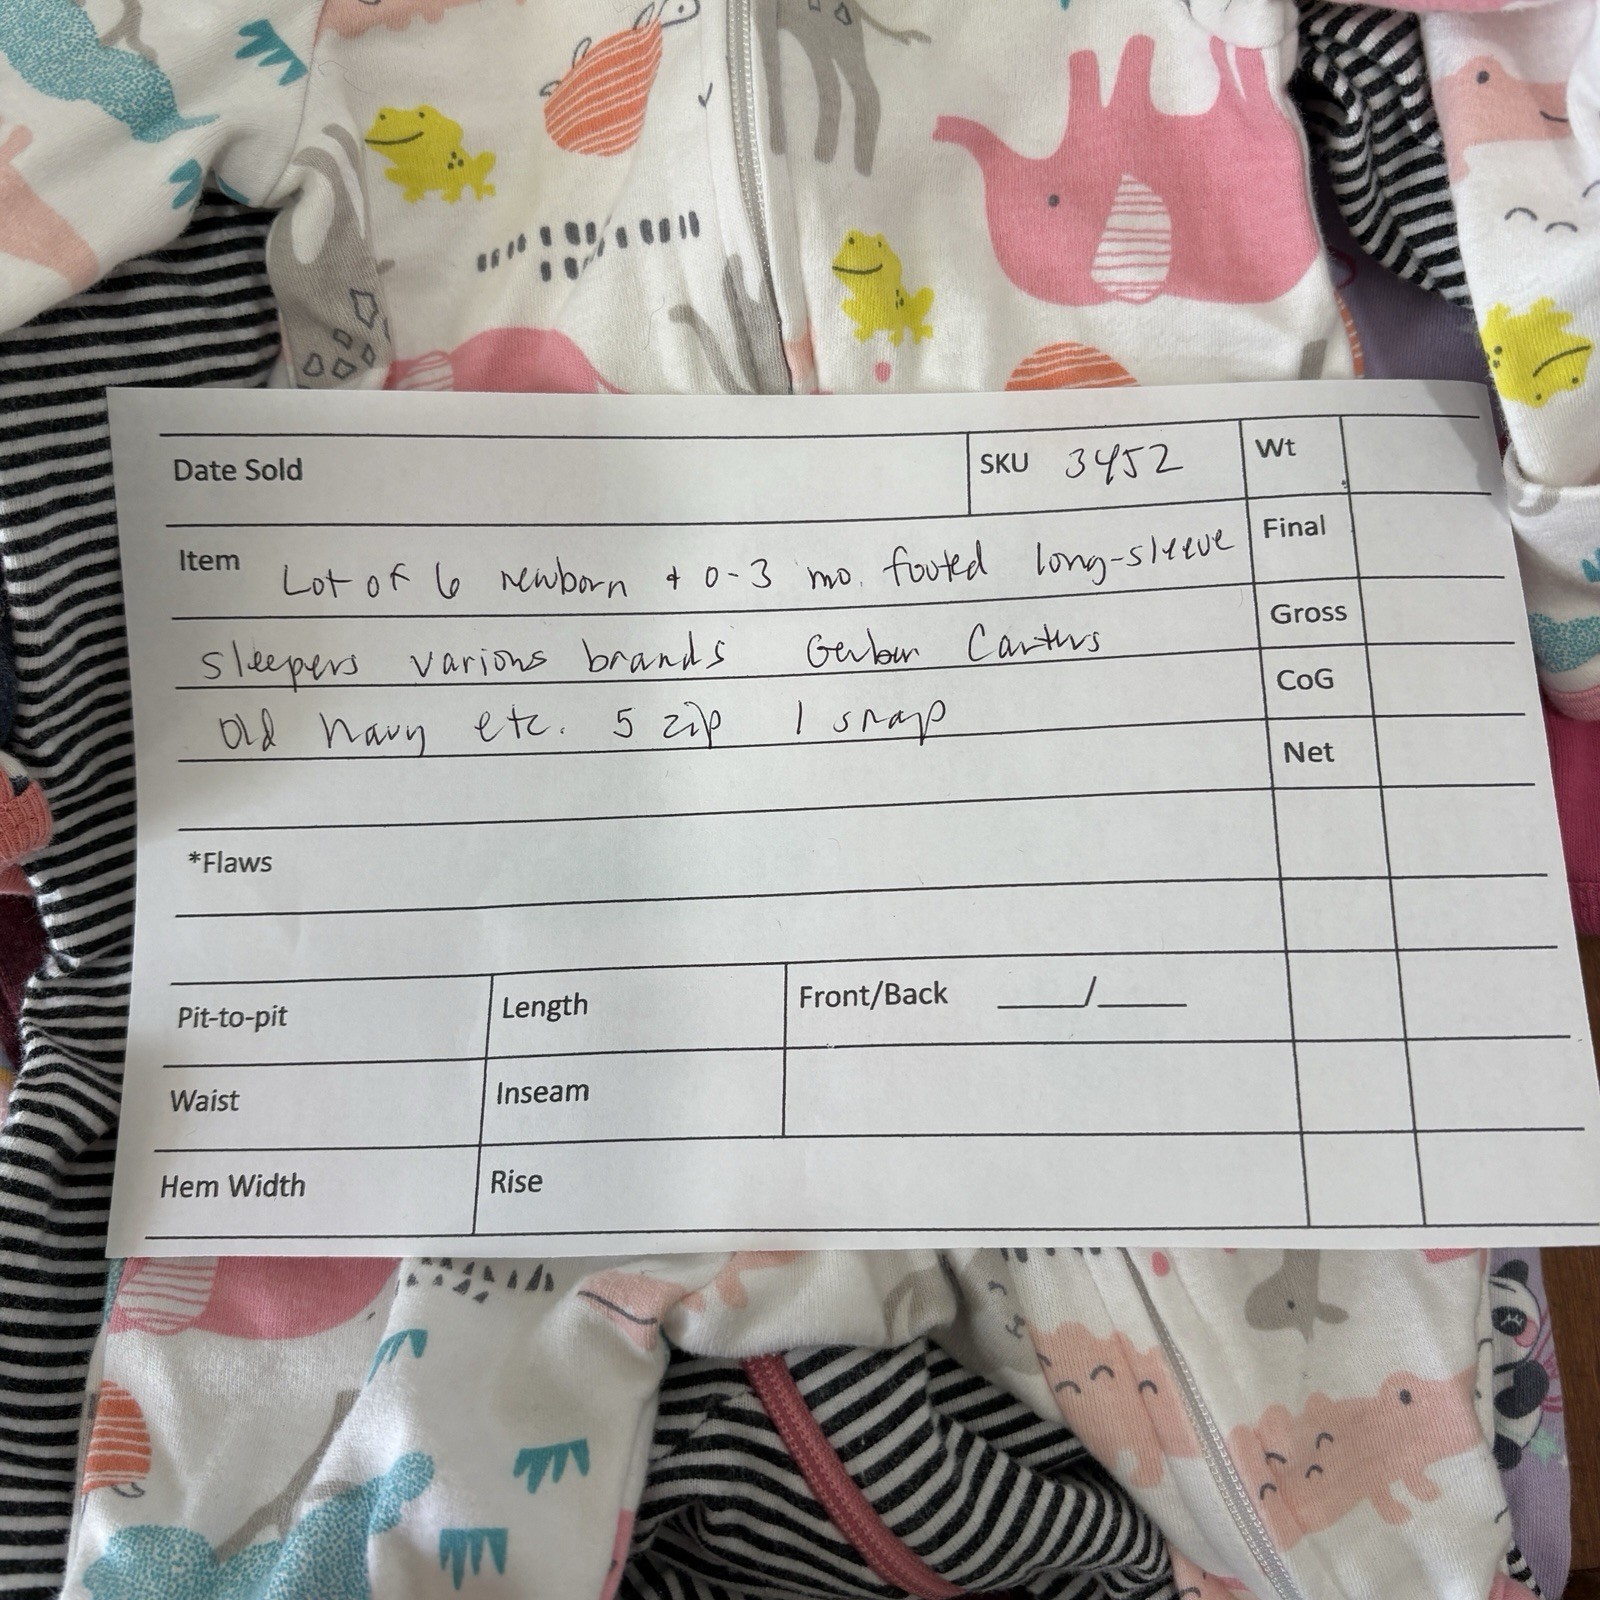 Date Sold SKU 3452 Wt
Item Lot of 6 newborn + 0-3 mo. footed long-sleeve Final
sleepers various brands Gerber Carters Gross
Old Navy etc. 5 zip 1 snap CoG
Net
*Flaws
Pit-to-pit Length Front/Back ____/____
Waist Inseam
Hem Width Rise